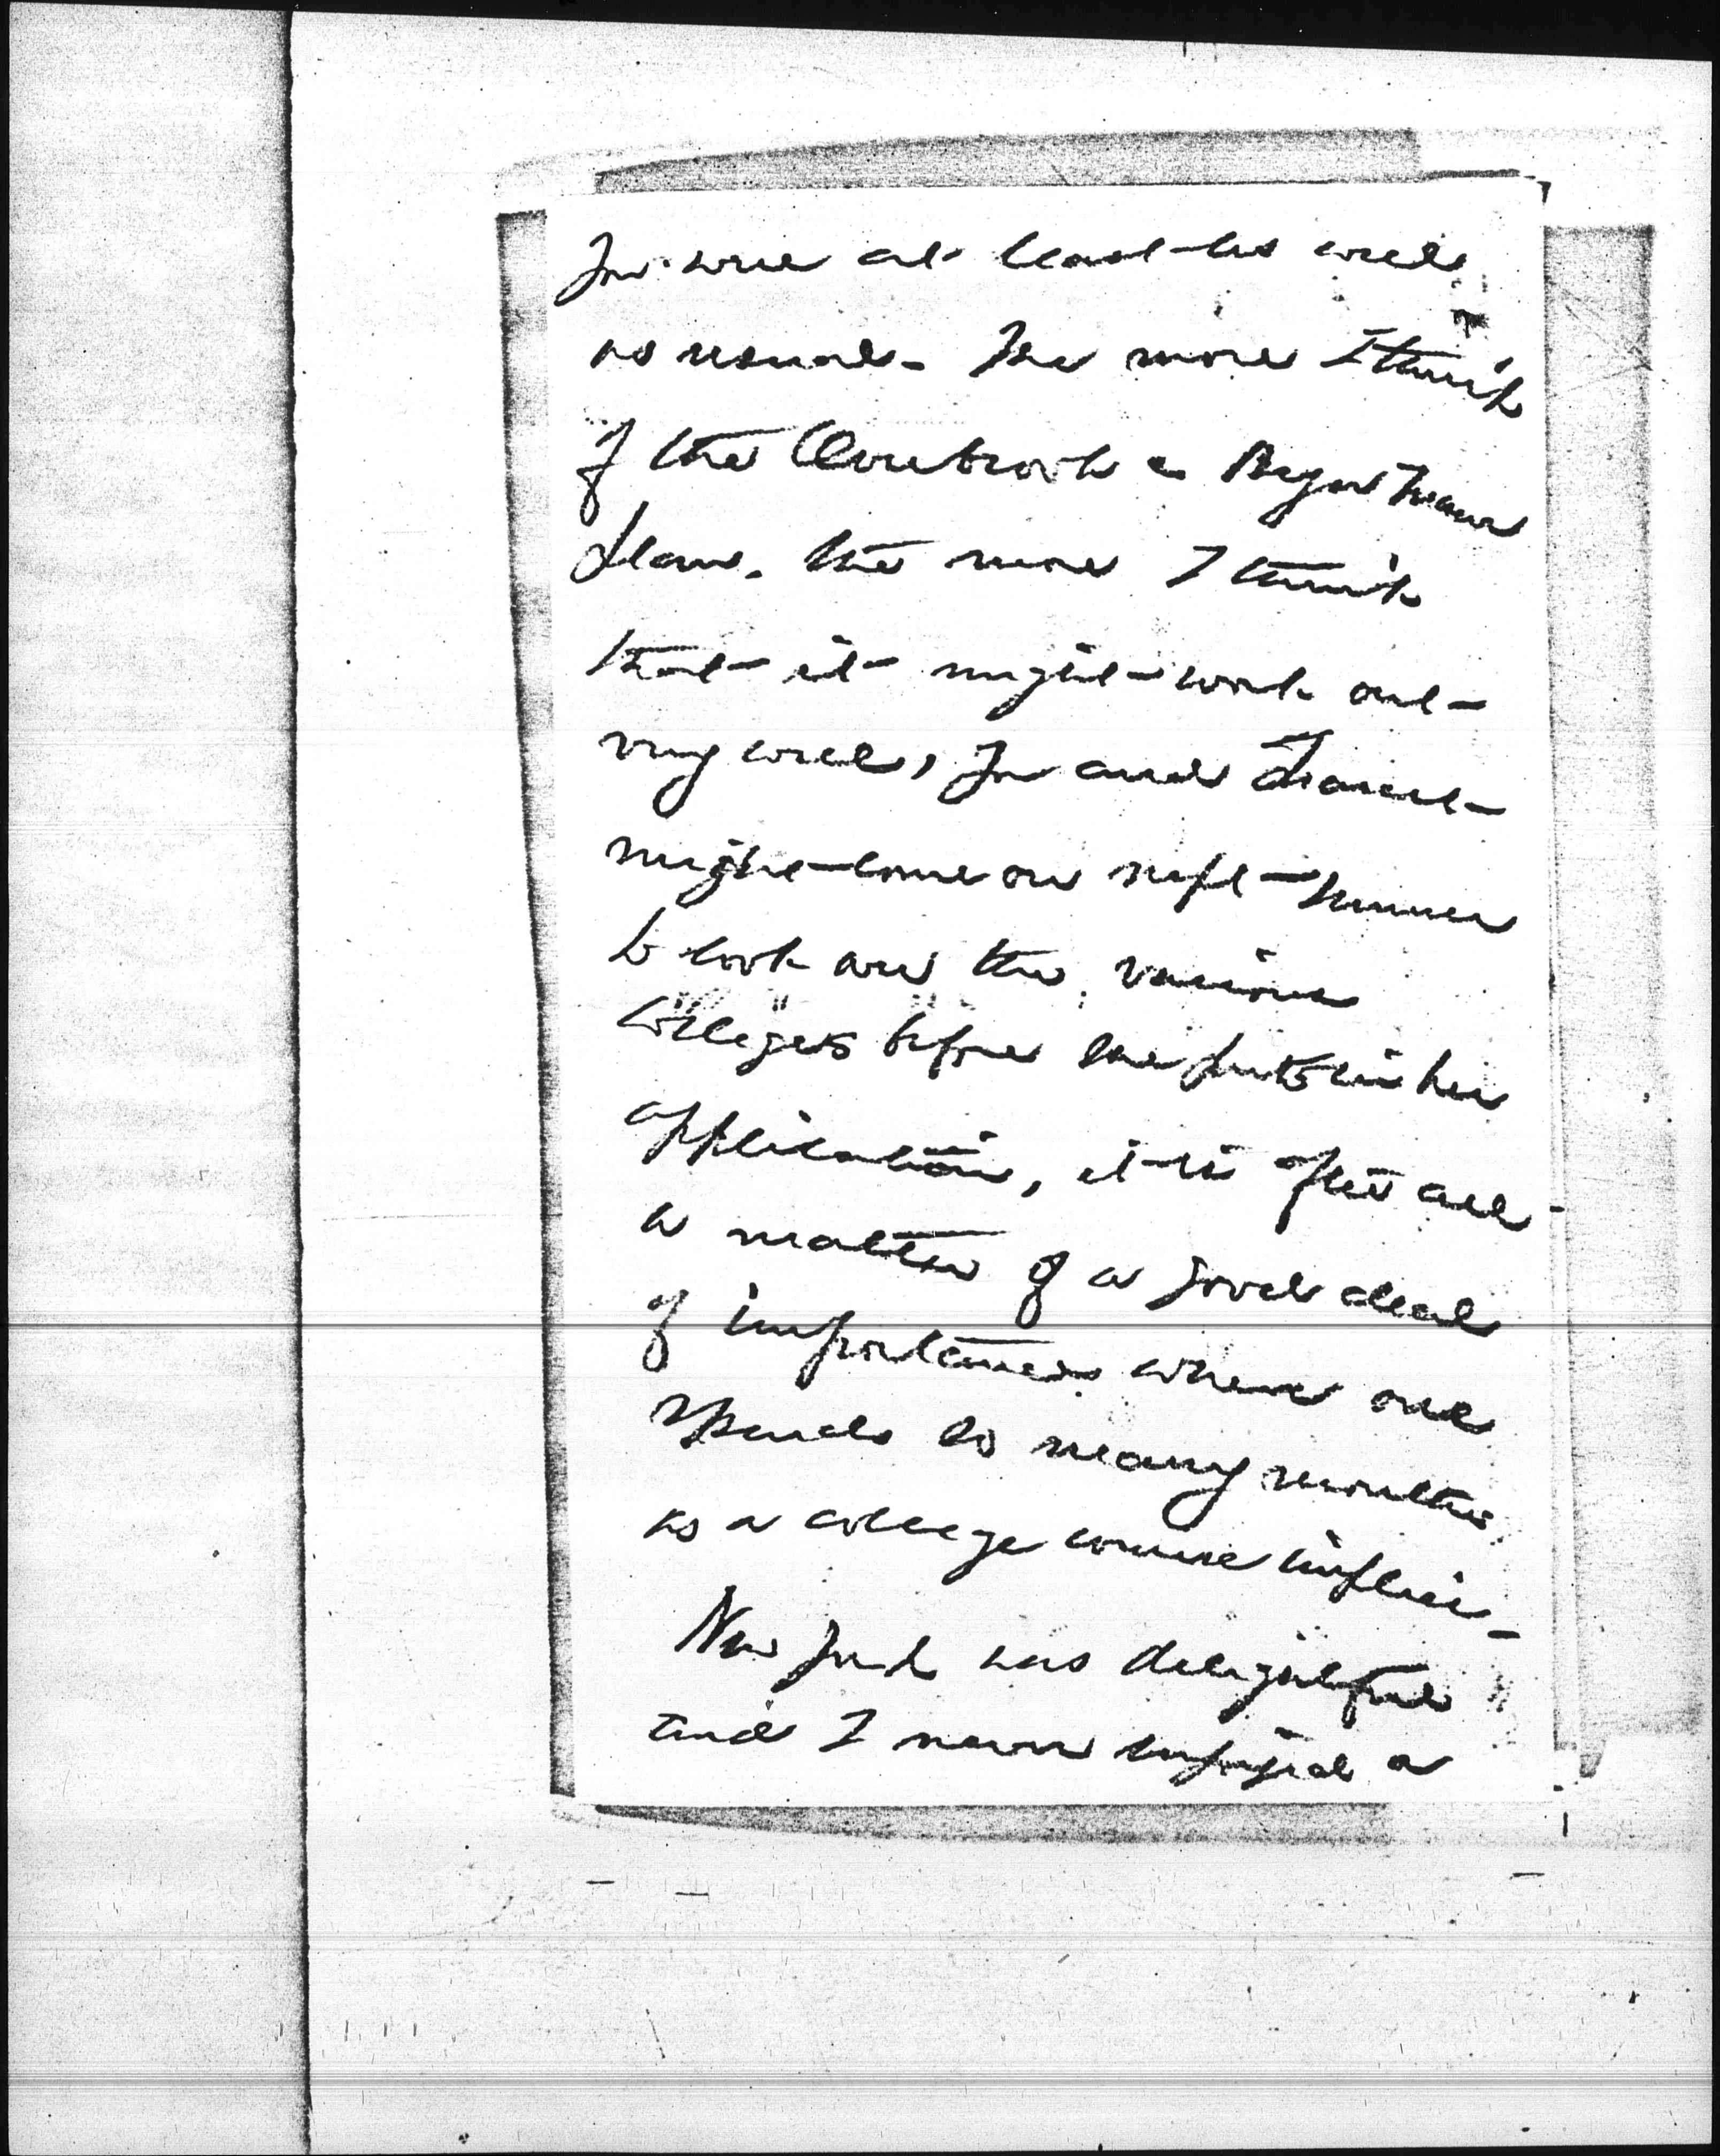 you will at least be well
as usual. The more I think
of the Overbrook - Bryn Mawr
plan, the more I think
that it might work out
very well, you and
might come on next summer
to look over the various
colleges before she puts in her
application, it is after all
a matter of a good deal
of importance where one
spends so many months
as a college course implies -
New York was delightful
and I never enjoyed a